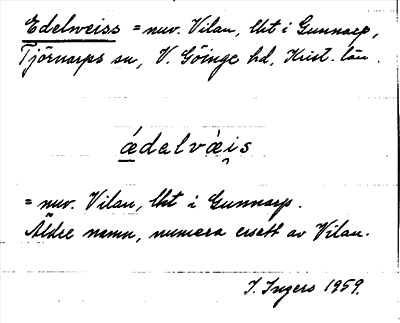 Edelweiss = nuv. Vilan, lht i Gunnarp,
Tjörnarps sn, V. Göinge hd, Krist. län.
ǽdelvæ̀i̯s
= nuv. Vilan, lht i Gunnarp.
Äldre namn, numera ersatt av Vilan.
I. Ingers 1959.